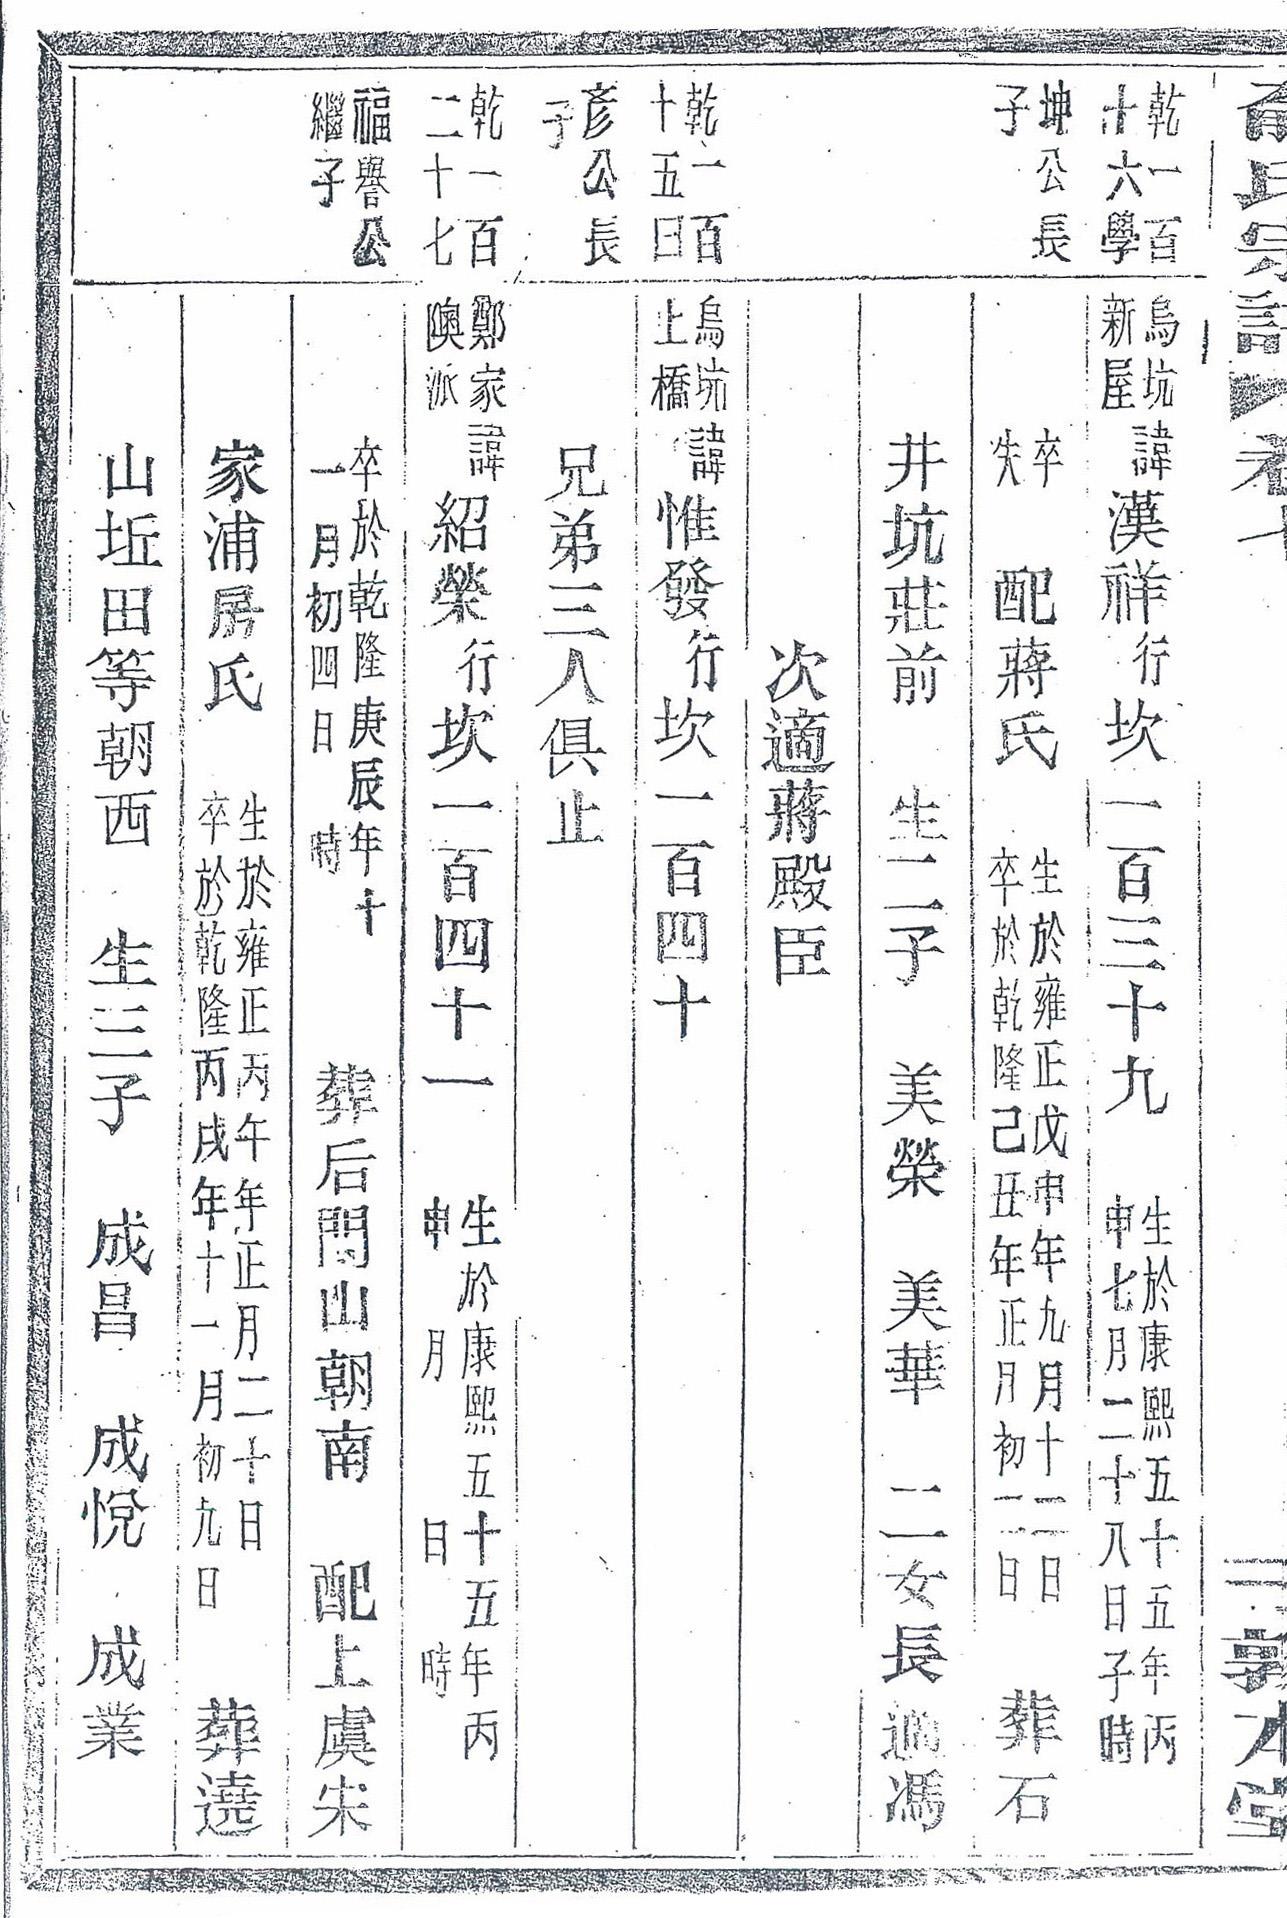 俞氏宗譜 卷七 敦本堂
乾一百
十六學
坤公長
子
烏坑
新屋
諱漢祥行坎一百三十九 生於康熙五十五年丙
申七月二十八日子時
卒
失
配蔣氏 生於雍正戊申年九月十二日
卒於乾隆己丑年正月初二日 葬石
井坑莊前 生二子 美榮 美華 二女長適馮
次適蔣殿臣
乾一百
十五曰
彥公長
子
烏坑
上橋
諱惟發行坎一百四十
兄弟三人俱止
乾一百
二十七
福譽公
繼子
鄭家
隩派
諱紹榮行坎一百四十一 生於康熙五十五年丙
申 月 日 時
卒於乾隆庚辰年十
一月初四日 時
葬后門山朝南 配上虞宋
家浦房氏 生於雍正丙午年正月二十日
卒於乾隆丙戌年十一月初九日 葬遶
山坵田等朝西 生三子 成昌 成悅 成業